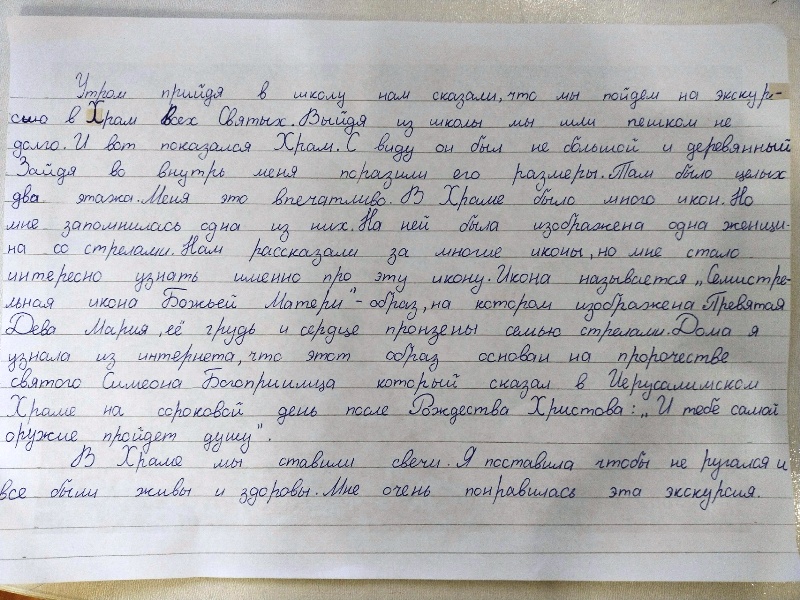 Утром прийдя в школу нам сказали, что мы пойдем на экскур-
сию в Храм Всех Святых. Выйдя из школы мы шли пешком не
долго. И вот показался Храм. С виду он был не большой и деревянный
Зайдя во внутрь меня поразили его размеры. Там было целых
два этажа. Меня это впечатливо. В Храме было много икон. Но
мне запомнилась одна из них. На ней была изображена одна женщи-
на со стрелами. Нам рассказали за многие иконы, но мне стало
интересно узнать именно про эту икону. Икона называется „Семистре-
льная икона Божьей Матери"- образ, на котором изображена Превятая
Дева Мария, её грудь и сердце пронзены семью стрелами. Дома я
узнала из интернета, что этот образ основан на пророчестве
святого Симеона Богоприимца который сказал в Иерусалимском
Храме на сороковой день после Рождества Христова: „И тебе самой
оружие пройдет душу".
В Храме мы ставили свечи. Я поставила чтобы не ругался и
все были живы и здоровы. Мне очень понравилась эта экскурсия.